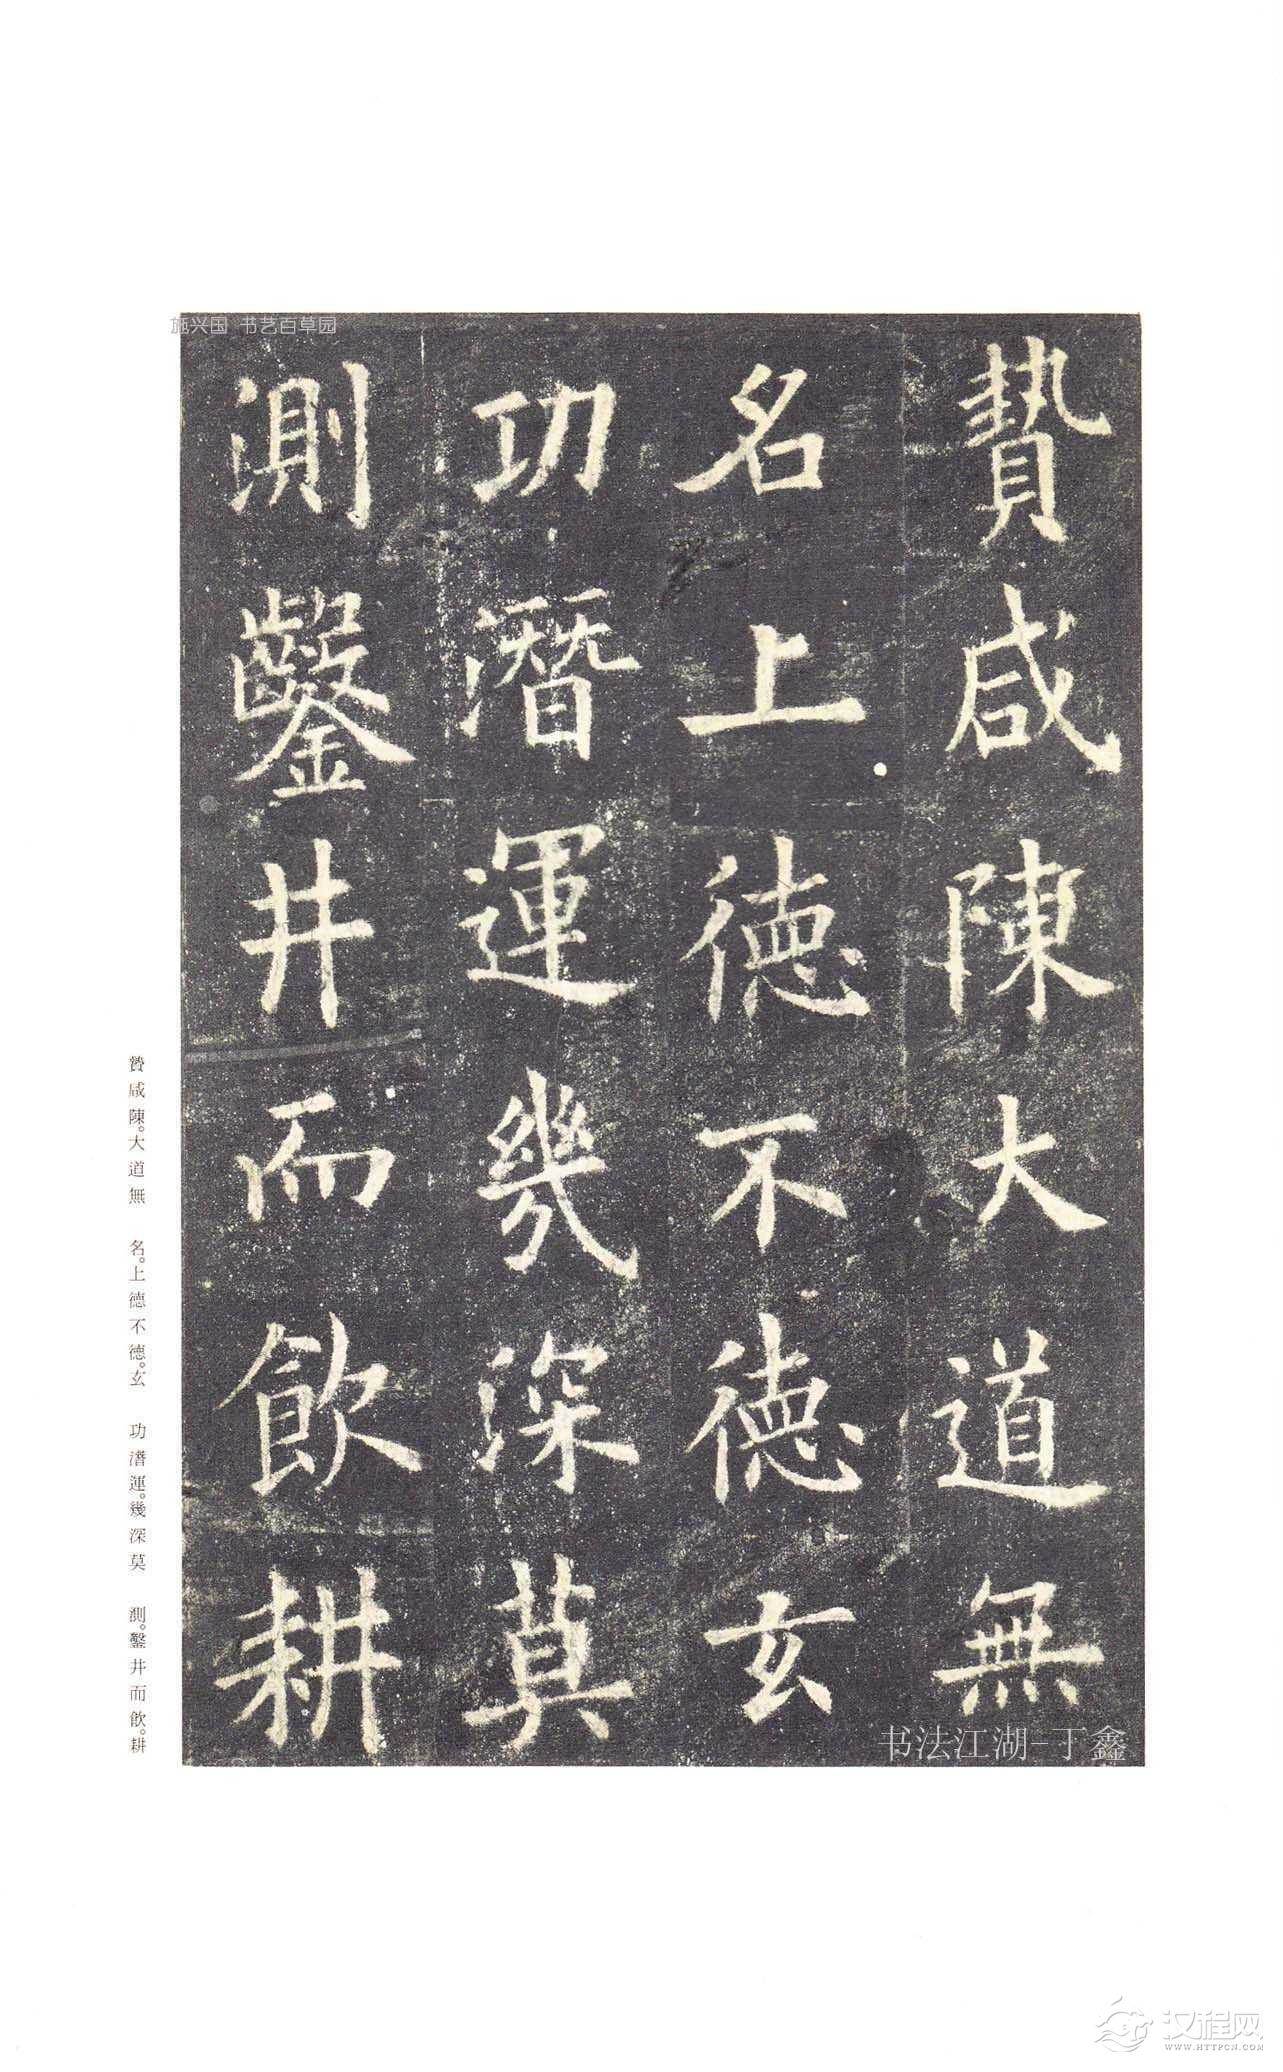 施兴国 书艺百草园
贄咸陳大道無
名上德不德玄
功潛運幾深莫
測鑿井而飲耕
贄咸陳。大道無 名。上德不德。玄 功潛運。幾深莫 測。鑿井而飲。耕
书法江湖-丁鑫
汉程网
WWW.HTTPCN.COM